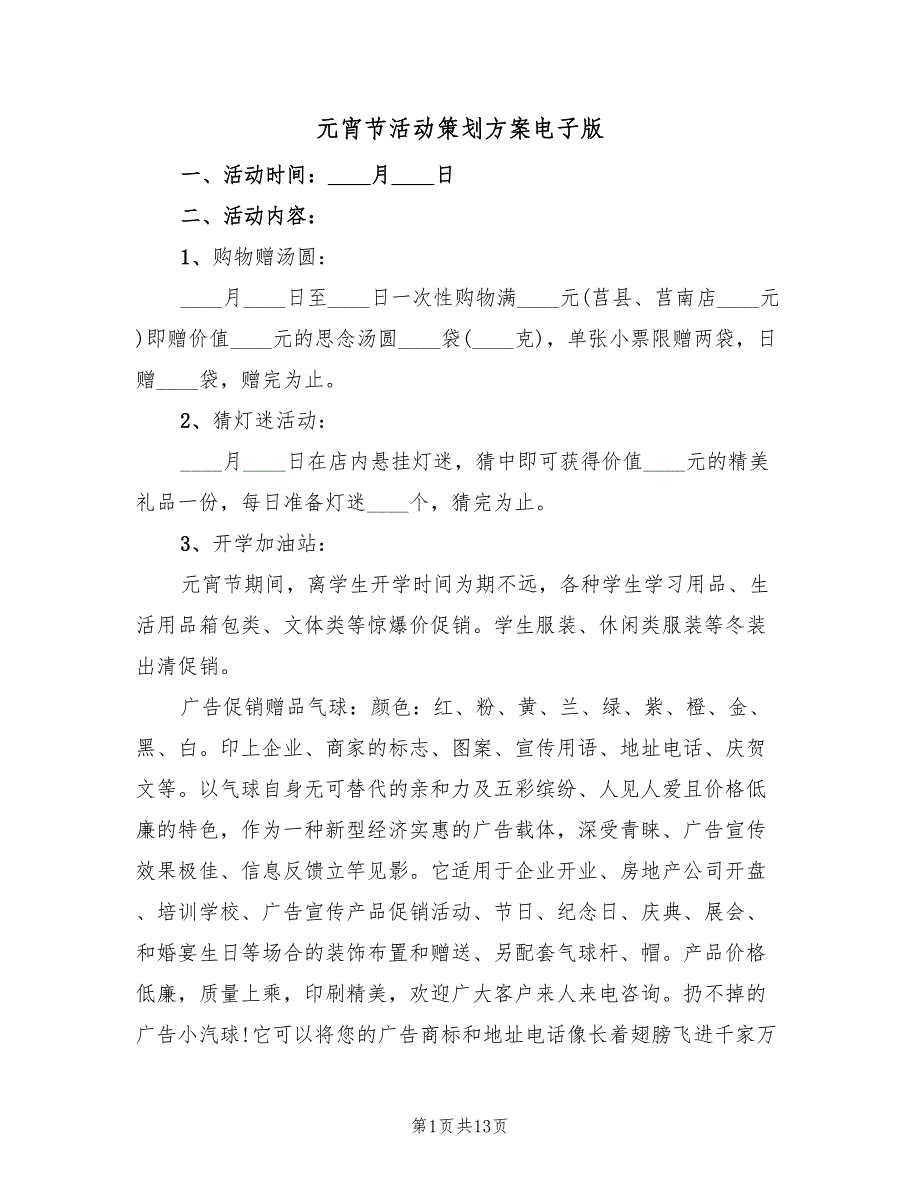 元宵节活动策划方案电子版
一、活动时间：____月____日
二、活动内容：
1、购物赠汤圆：
____月____日至____日一次性购物满____元(莒县、莒南店____元
)即赠价值____元的思念汤圆____袋(____克)，单张小票限赠两袋，日
赠____袋，赠完为止。
2、猜灯迷活动：
____月____日在店内悬挂灯迷，猜中即可获得价值____元的精美
礼品一份，每日准备灯迷____个，猜完为止。
3、开学加油站：
元宵节期间，离学生开学时间为期不远，各种学生学习用品、生
活用品箱包类、文体类等惊爆价促销。学生服装、休闲类服装等冬装
出清促销。
广告促销赠品气球：颜色：红、粉、黄、兰、绿、紫、橙、金、
黑、白。印上企业、商家的标志、图案、宣传用语、地址电话、庆贺
文等。以气球自身无可替代的亲和力及五彩缤纷、人见人爱且价格低
廉的特色，作为一种新型经济实惠的广告载体，深受青睐、广告宣传
效果极佳、信息反馈立竿见影。它适用于企业开业、房地产公司开盘
、培训学校、广告宣传产品促销活动、节日、纪念日、庆典、展会、
和婚宴生日等场合的装饰布置和赠送、另配套气球杆、帽。产品价格
低廉，质量上乘，印刷精美，欢迎广大客户来人来电咨询。扔不掉的
广告小汽球!它可以将您的广告商标和地址电话像长着翅膀飞进千家万
第1页共13页